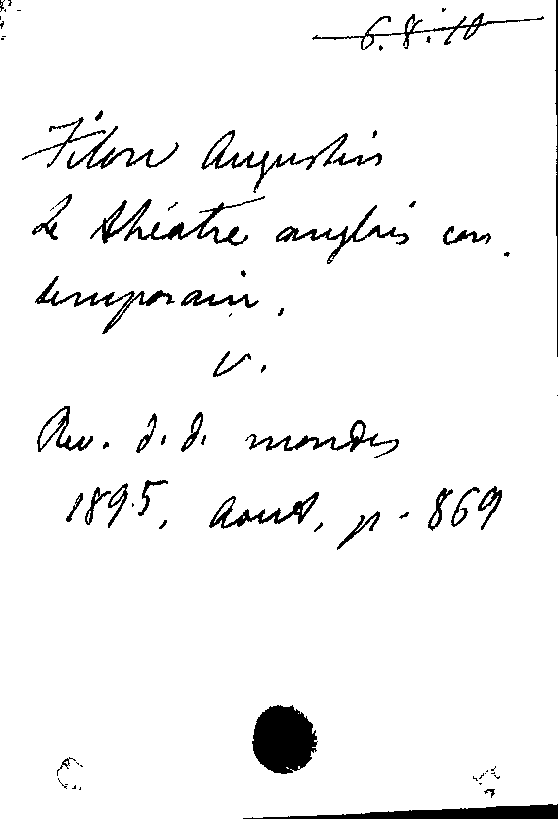 6.8.10
Filon Augustin
Le théâtre anglais con.
temporain.
V.
Rev. d. d. mondes
1895, Aout, p. 869